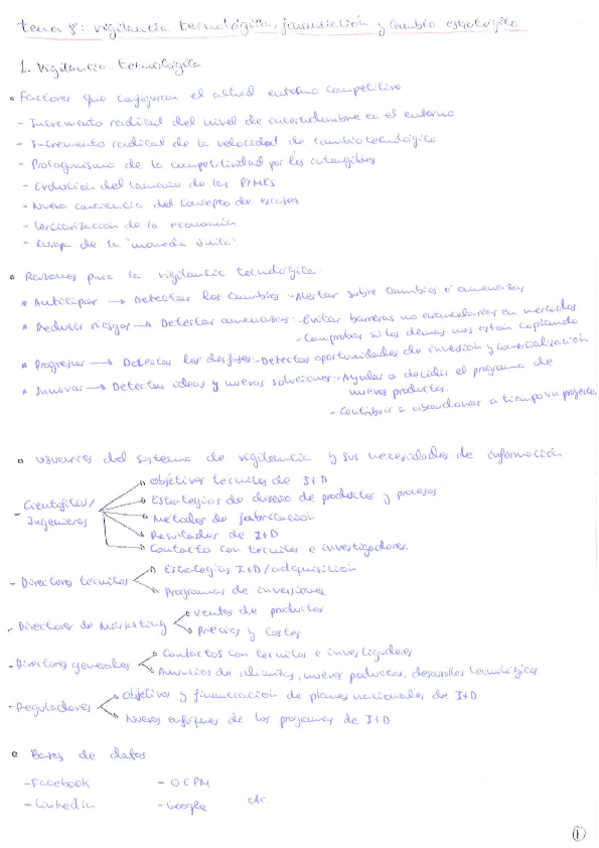 tema 8: vigilancia tecnológica, financiación y cambio estratégico
1. Vigilancia tecnológica
Factores que configuran el actual entorno competitivo
- Incremento radical del nivel de incertidumbre en el entorno
- Incremento radical de la velocidad de cambio tecnológico
- Protagonismo de la competitividad por los intangibles
- Evolución del tamaño de las PYMES
- Nueva conciencia del concepto de
- terciarización de la economía
- Europa de la "moneda única".
Razones para la vigilancia tecnológica:
* Anticipar → Detectar los cambios: - Alertar sobre cambios o amenazas
* Reducir riesgos → Detectar amenazas: - Evitar barreras no arancelarias en mercados
- Comprobar si los demás nos están copiando
* Progresar → Detectar los desfases: - Detectar oportunidades de inversión y comercialización
* Innovar → Detectar ideas y nuevas soluciones: - Ayudar a decidir el programa de
nuevos productos.
- Contribuir a abandonar a tiempo un proyecto.
Usuarios del sistema de vigilancia y sus necesidades de información
- Científicos/Ingenieros
Objetivos técnicos de I+D
Estrategias de diseño de productos y procesos
Métodos de fabricación
Resultados de I+D
Contacto con técnicos e investigadores
- Directores técnicos
Estrategias I+D/adquisición
Programas de inversiones
- Directores de Marketing
Ventas de productos
Precios y costes
- Directores generales
Contactos con técnicos e investigadores
Anuncios de alianzas, nuevos productos, desarrollo tecnológico
- Reguladores
Objetivos y financiación de planes nacionales de I+D
Nuevos enfoques de los programas de I+D
Bases de datos
- Facebook - OEPM
- Linkedin - Google etc.
1